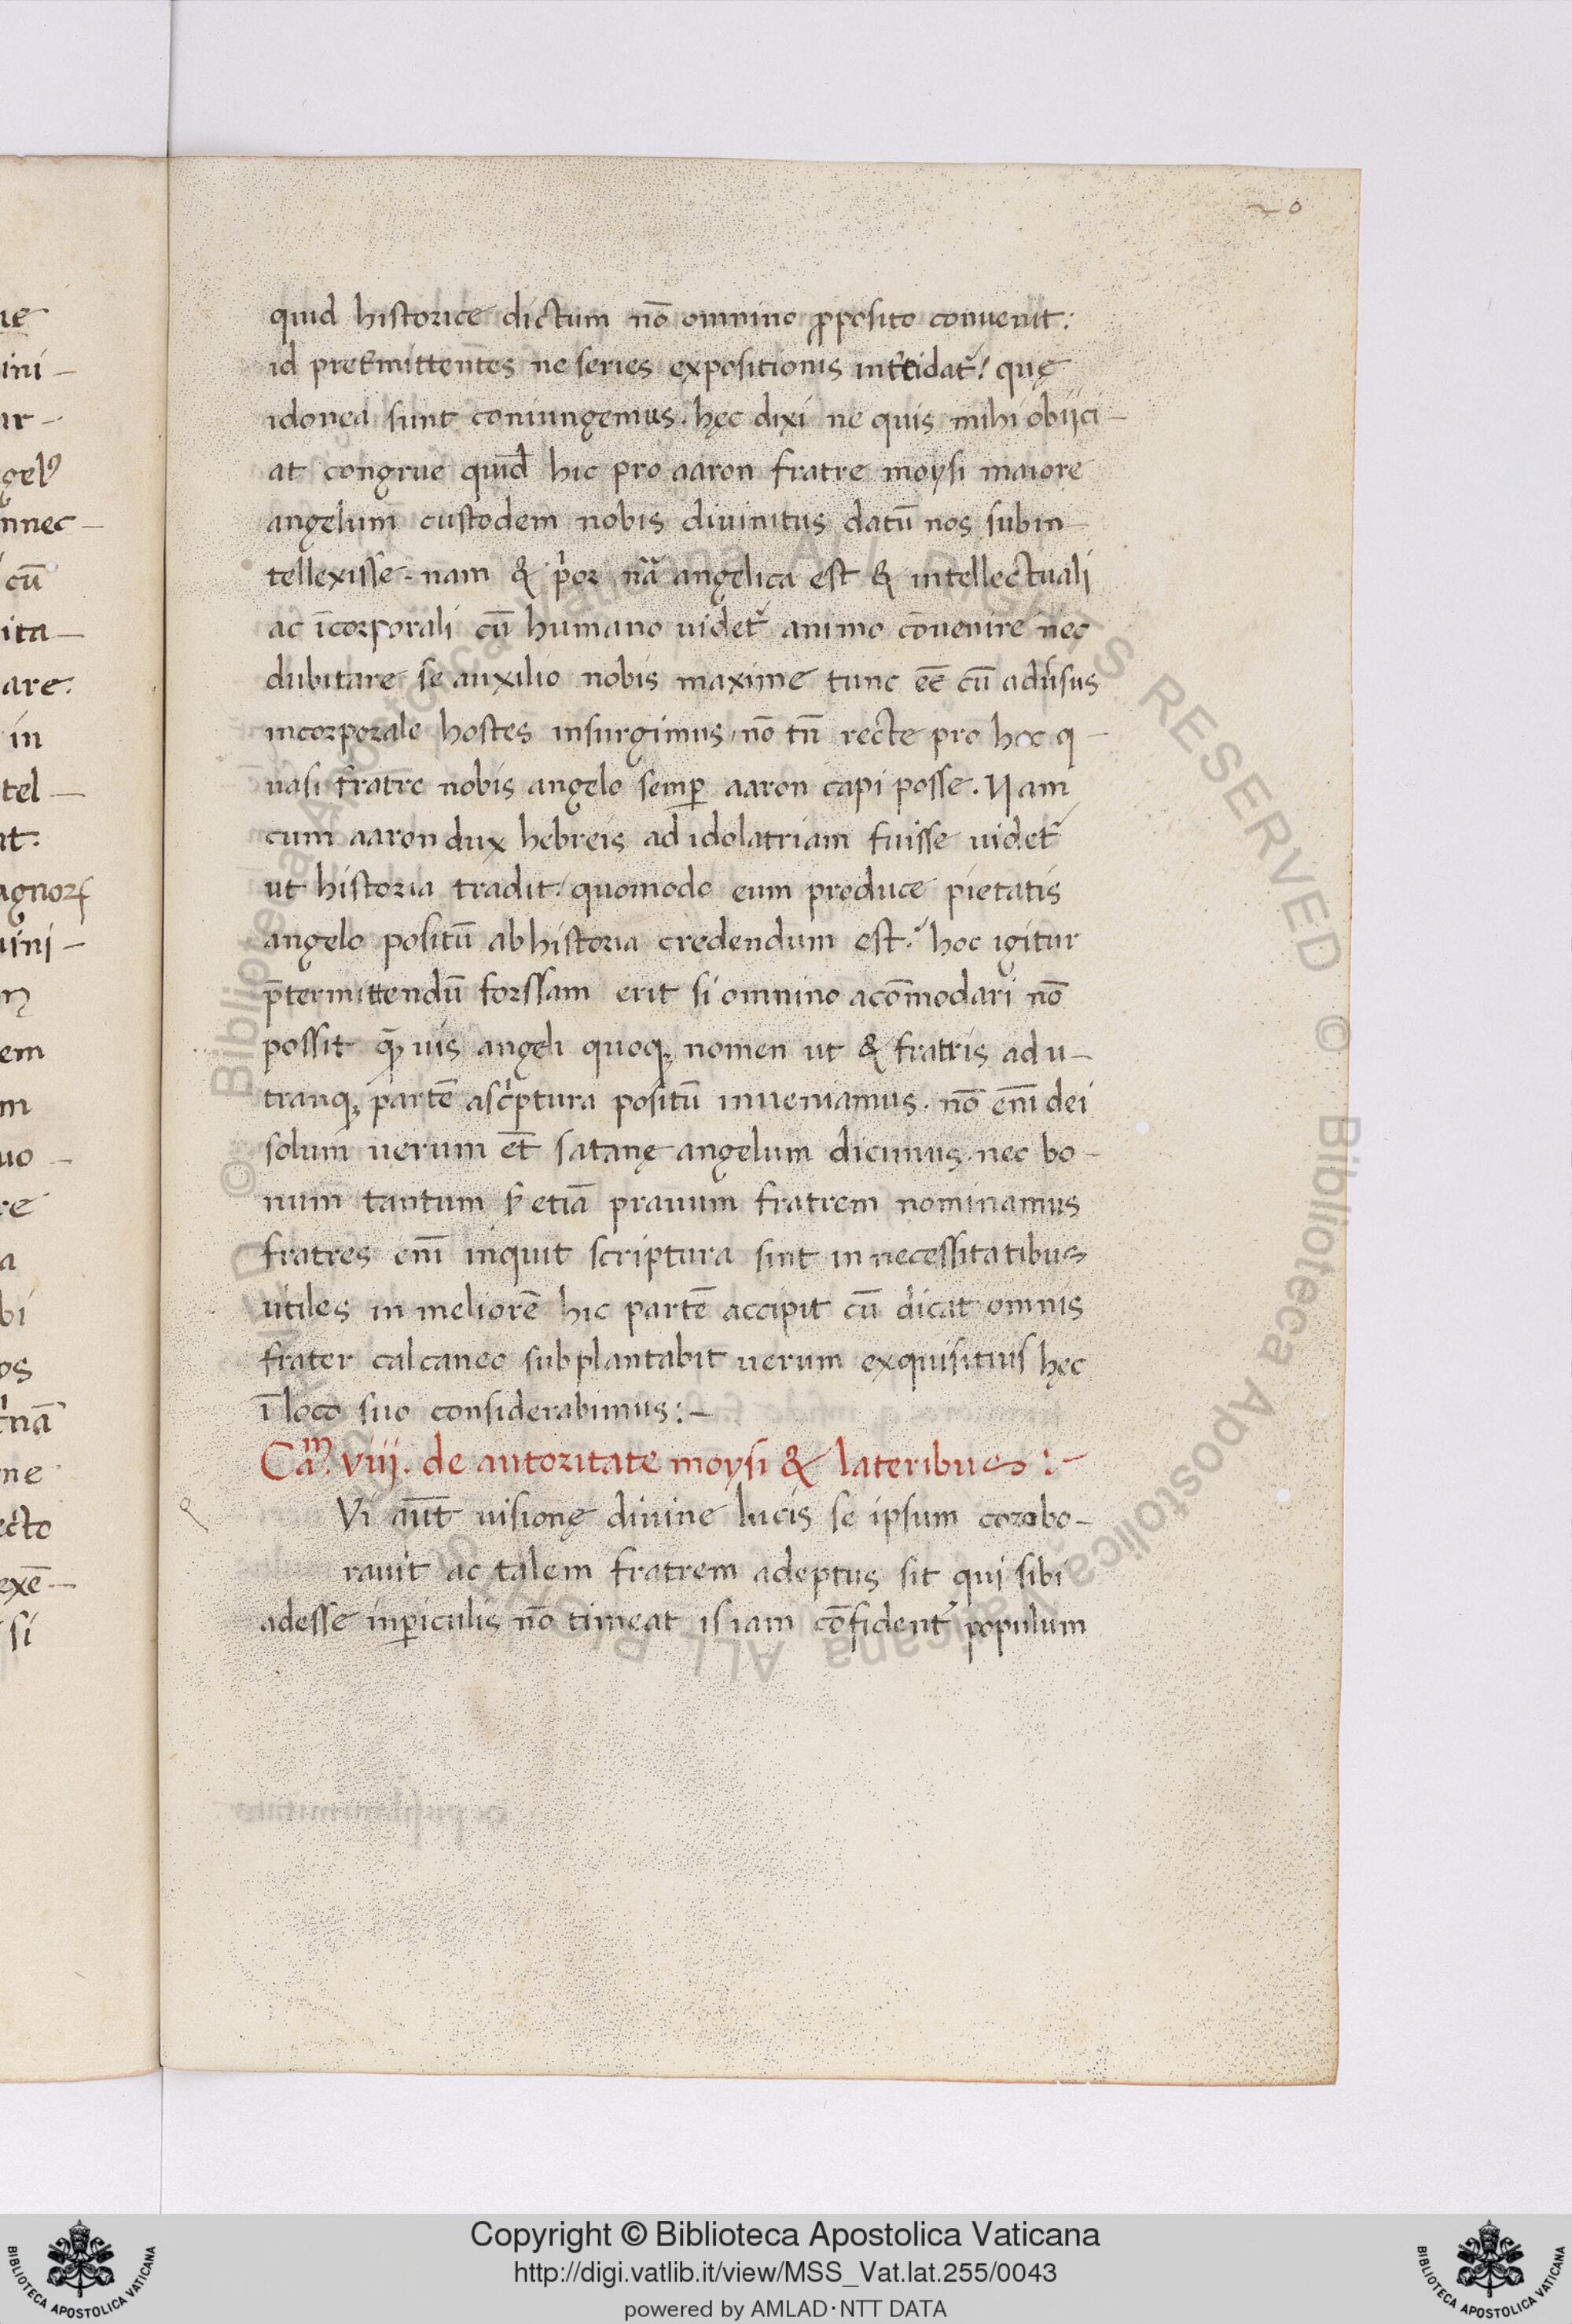 20
quid historice dictum nō omnino ꝓposito convenit:
id preťmittentes ne series expositionis inťcidať: quę
idonea sunt coniungemus. hęc dixi ne quis mihi obijci-
at congrue quid hic pro aaron fratre moysi maiore
angelum custodem nobis divinitus datū nos subin
tellexisse. nam & pͥor nr̄a angelica est & intellectuali
ac īcorporali cū humano videť animo cōvenire nec
dubitare se auxilio nobis maxime tunc eē cū adv̓sus
incorporale hostes insurgimus, nō tn̄ recte pro hoc q-
uasi fratre nobis angelo semꝑ aaron capi posse. Nam
cum aaron dux hebreis ad idolatriam fuisse videť
ut historia tradit: quomodo eum produce pietatis
angelo positū ab historia credendum est. hoc igitur
p̄termittendū forssam erit si omnino acōmodari nō
possit vis angeli quoqꝫ nomen ut & fratris ad u-
tranqꝫ partē ascͥptura positū inveniamus. nō enī dei
solum verum et̄ satanę angelum dicimus. nec bo-
num tantum etiā pravum fratrem nominamus
fratres enī inquit scriptura sint in necessitatibus
utiles in meliorē hic partē accipit cū dicat omnis
frater calcaneo subplantabit verum exquisitius hęc
ī loco suo considerabimus:-
Cam̄. viij. de autoritate moysi & lateribus:-
Vi aūt visionę divine lucis se ipsum corobo-
ravit ac talem fratrem adeptus sit qui sibi
adesse inꝑiculis nō timeat is iam cōfidenť populum
Copyright © Biblioteca Apostolica Vaticana
http://digi.vatlib.it/view/MSS_Vat.lat.255/0043
powered by AMLAD·NTT DATA